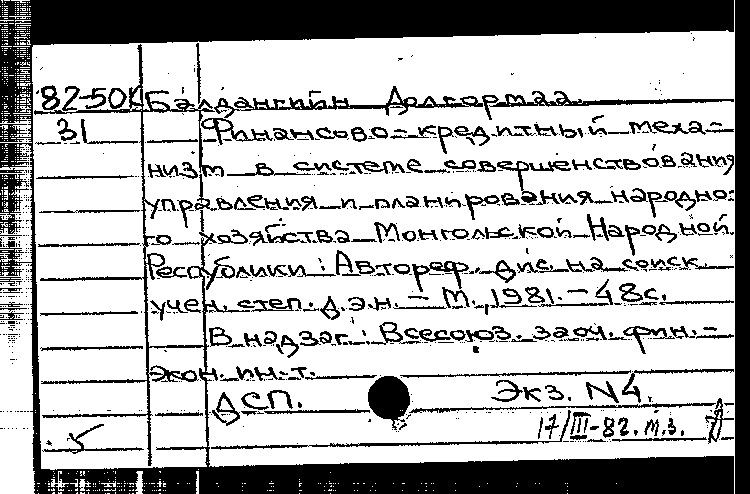 82-50К Балдангийн Долгормаа.
31 Финансово-кредитный меха-
низм в системе совершенствования
управления и планирования народно-
го хозяйства Монгольской Народной
Республики: Автореф. дис. на соиск.
учен. степ. д.э.н. – М., 1981. – 48с.
В надзаг.: Всесоюз. заоч. фин.-
экон. ин-т.
ДСП. Экз. N4.
17/III-82. м.з.